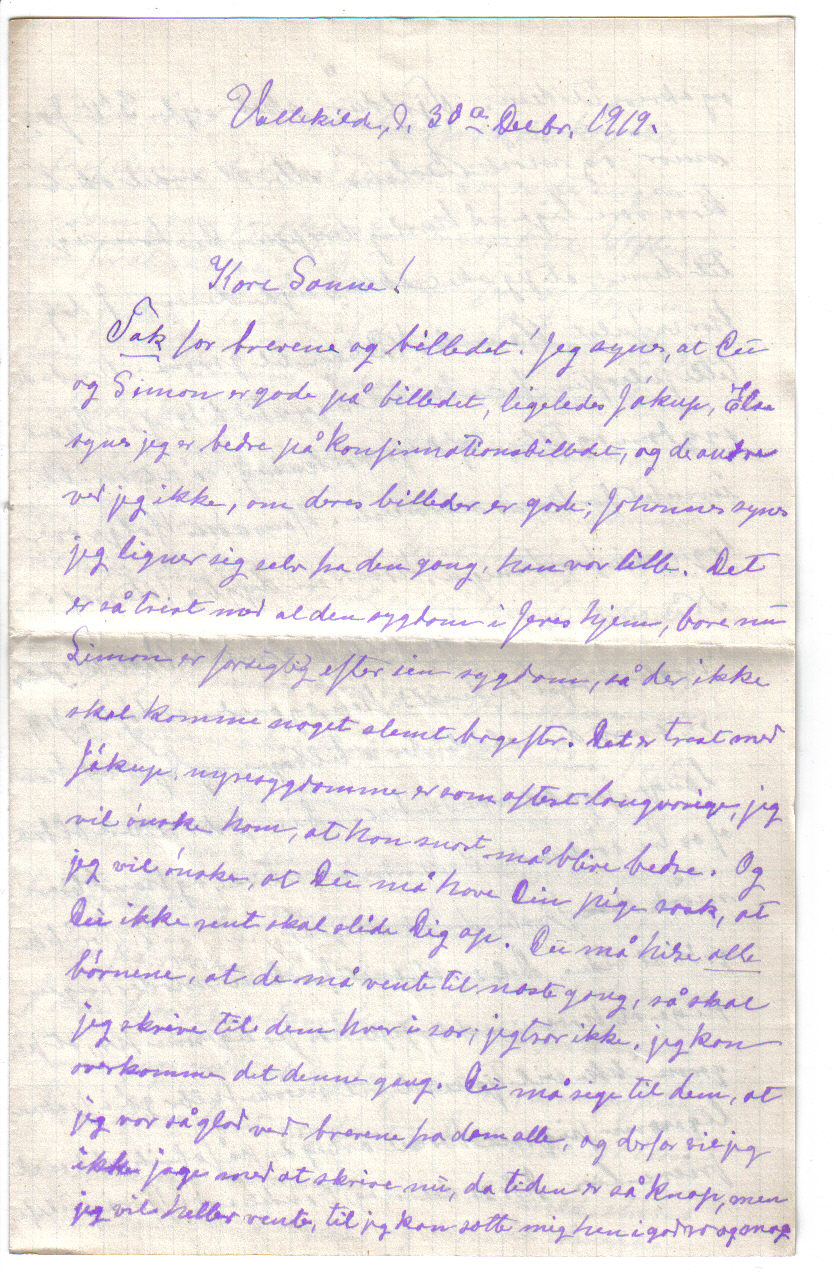 Vallekilde, d. 30te Decbr. 1919.
Kære Sanne!
Tak for brevene og billedet! Jeg synes, at Du
og Simon er gode på billedet, ligeledes Jákup, Elsa
synes jeg er bedre på konfirmationsbilledet, og de andre
ved jeg ikke, om deres billeder er gode, Johannes synes
jeg ligner sig selv fra den gang, han var lille. Det
er så trist med al den sygdom i Jeres hjem, bare nu
Simon er forsigtig efter sin sygdom, så der ikke
skal komme noget slemt bagefter. Det er trist med
Jákup, nyresygdomme er som oftest langvarige, jeg
vil ønske ham, at han snart må blive bedre. Og
jeg vil ønske, at Du må have Din pige rask, at
Du ikke rent skal slide Dig op. Du må hilse alle
børnene, at de må vente til næste gang, så skal
jeg skrive til dem hver især; jeg tror ikke, jeg kan
overkomme det denne gang. Du må sige til dem, at
jeg var så glad ved brevene fra dem alle, og derfor vil jeg
ikke jage med at skrive nu, da tiden er så knap, men
jeg vil heller vente, til jeg kan sætte mig hen i god ro og mag